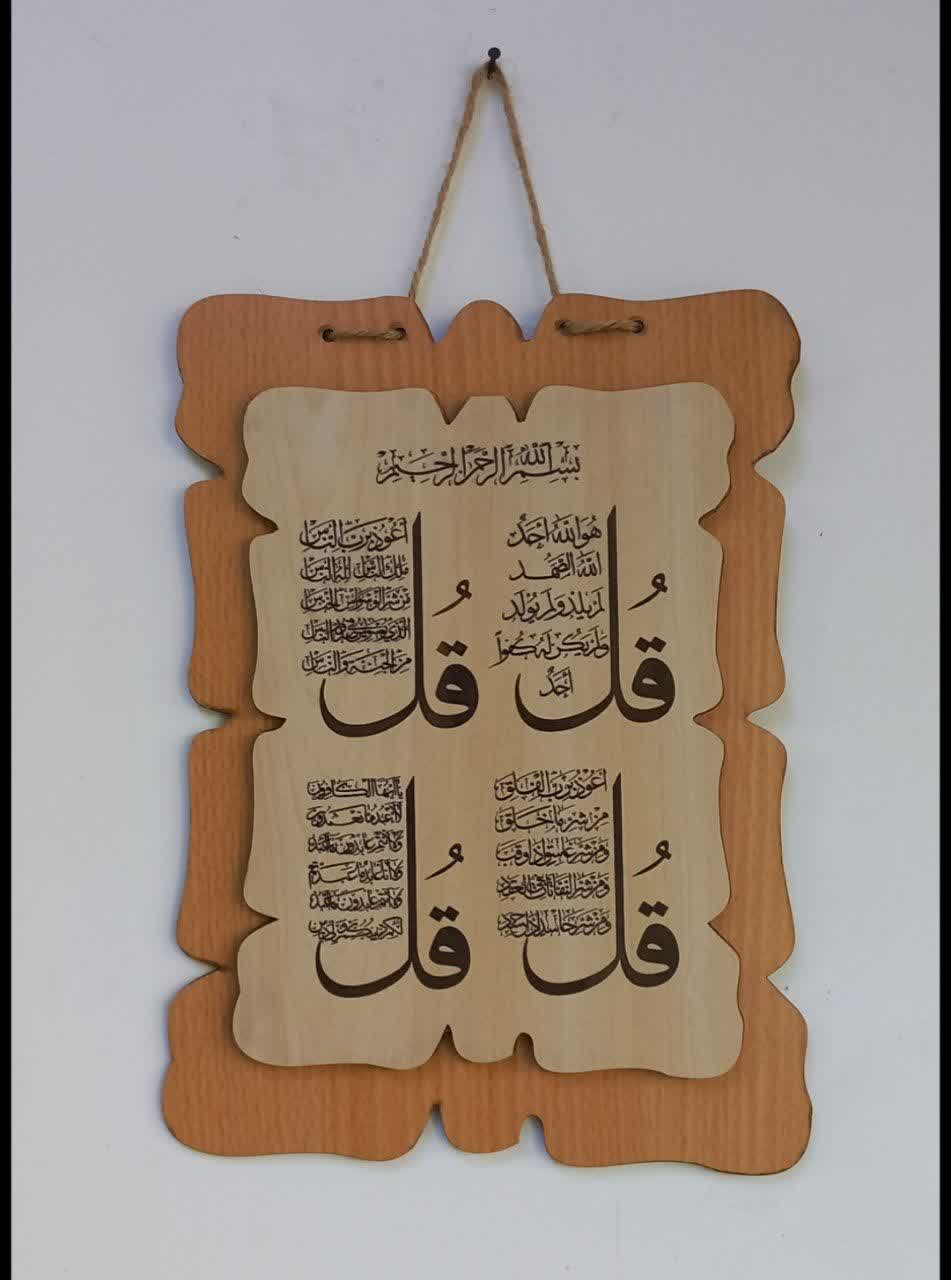 بِسْمِ اللهِ الرَّحْمٰنِ الرَّحِيْمِ
قُل
هُوَ اللهُ أَحَدٌ
اللهُ الصَّمَدُ
لَمْ يَلِدْ وَلَمْ يُولَدْ
وَلَمْ يَكُنْ لَهُ كُفُواً
أَحَدٌ
قُل
أَعُوذُ بِرَبِّ النَّاسِ
مَلِكِ النَّاسِ إِلَهِ النَّاسِ
مِنْ شَرِّ الْوَسْوَاسِ الْخَنَّاسِ
الَّذِي يُوَسْوِسُ فِي صُدُورِ النَّاسِ
مِنَ الْجِنَّةِ وَالنَّاسِ
قُل
أَعُوذُ بِرَبِّ الْفَلَقِ
مِنْ شَرِّ مَا خَلَقَ
وَمِنْ شَرِّ غَاسِقٍ إِذَا وَقَبَ
وَمِنْ شَرِّ النَّفَّاثَاتِ فِي الْعُقَدِ
وَمِنْ شَرِّ حَاسِدٍ إِذَا حَسَدَ
قُل
يَا أَيُّهَا الْكَافِرُونَ
لَا أَعْبُدُ مَا تَعْبُدُونَ
وَلَا أَنْتُمْ عَابِدُونَ مَا أَعْبُدُ
وَلَا أَنَا عَابِدٌ مَا عَبَدْتُمْ
وَلَا أَنْتُمْ عَابِدُونَ مَا أَعْبُدُ
لَكُمْ دِينُكُمْ وَلِيَ دِينِ